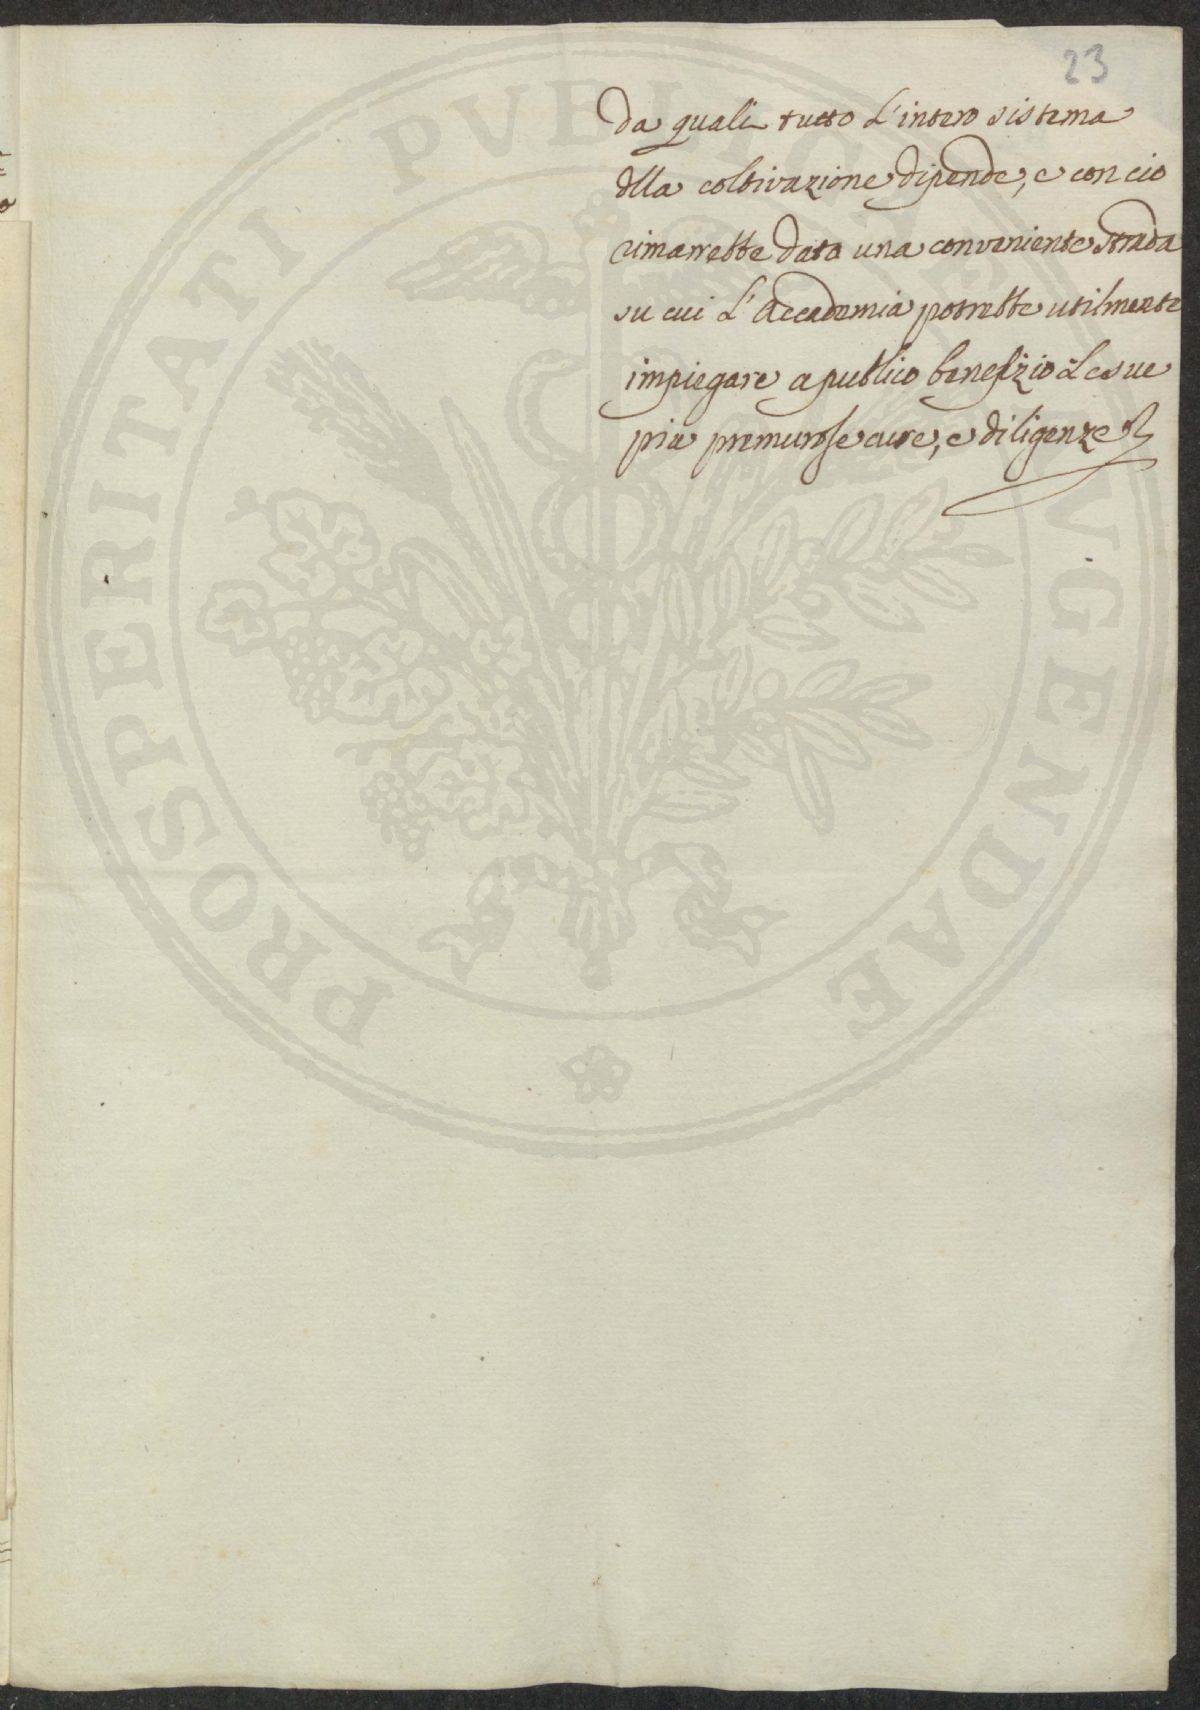 23
da quali tutto l'intero sistema
dlla coltivazione dipende, e con cio
rimarrebbe data una conveniente strada
su cui l'Accademia potrebbe utilmente
impiegare a publico benefizio le sue
più premurose cure, e diligenze
PROSPERITATI PVBLICAE AVGENDAE